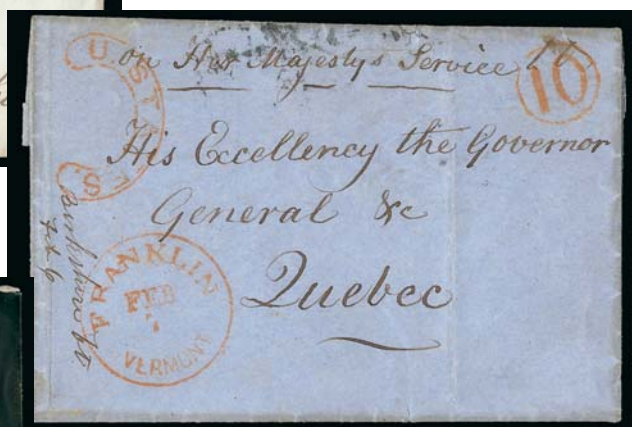 U. STATES.
on Her Majesty's Service
10
His Excellency the Governor
General &c
Quebec
FRANKLIN
FEB
7
VERMONT